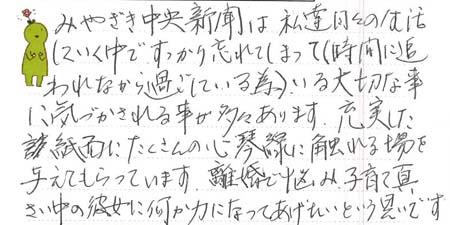 みやざき中央新聞は私達日々の生活
していく中ですっかり忘れてしまって(時間に追
われながら過ごしている為)いる大切な事
に気づかされる事が多々あります。充実した
紙面にたくさんの心の琴線に触れる場を
与えてもらっています。離婚で悩み子育て真
さい中の彼女に何か力になってあげたいという思いです